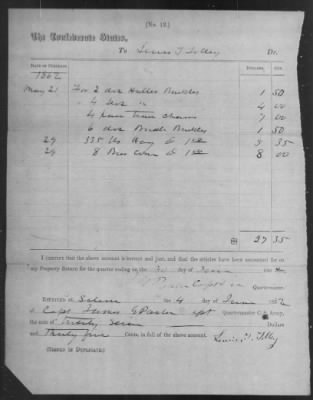 [No. 12.]
The Confederate States,
To Lewis T. Tolley Dr.
DATE OF PURCHASE. DOLLARS. CTS.
1862
May 21 For 2 doz Halter Buckles 1 50
" 4 doz " 4 00
" 4 pair Trace Chains 7 00
6 doz Bridle Buckles 1 50
29 335 lbs Hay @ 1 5 35
29 8 Bus Corn @ 1 8 00
27 35
I CERTIFY that the above account is correct and just, and that the articles have been accounted for on
my Property Return for the quarter ending on the 30 day of June
Quartermaster.
RECEIVED at Salem the 4 day of June 1862
Capt James Quartermaster C. S. Army,
the sum of Twenty Seven Dollars
and Thirty five Cents, in full of the above account.
(SIGNED IN DUPLICATE.)